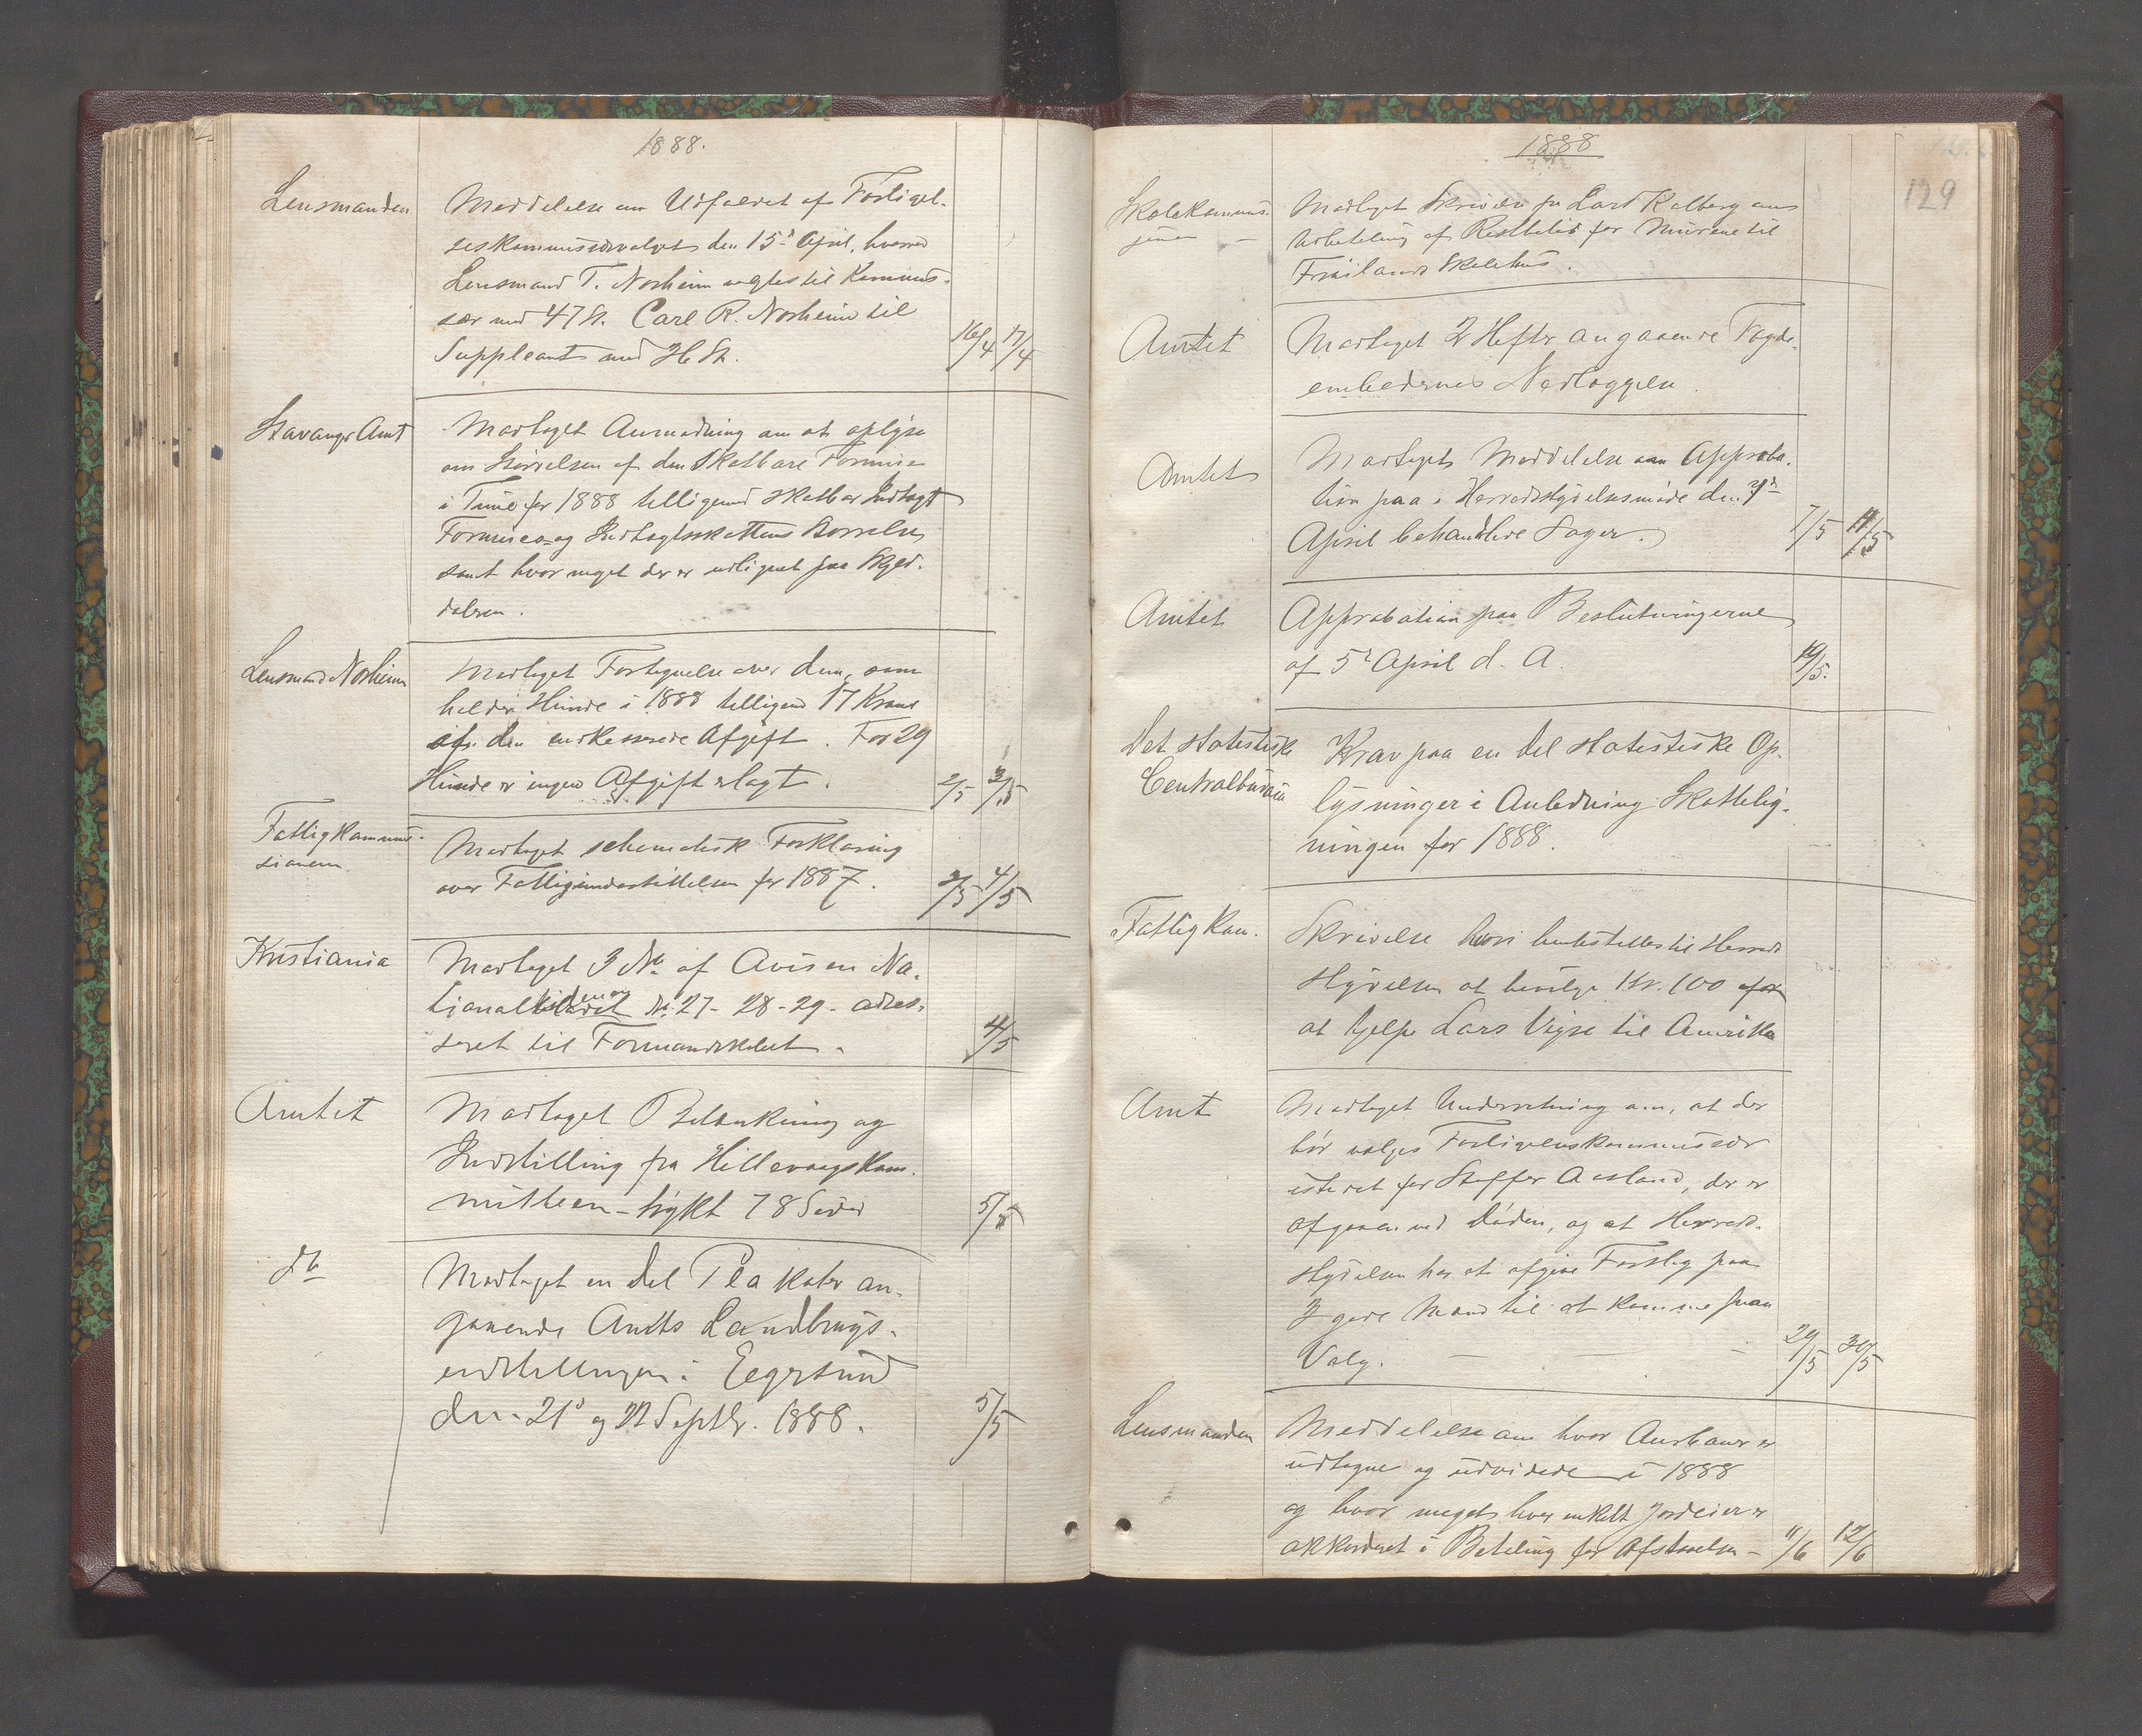 1888.
Lensmanden
Meddelelse om Udfaldet af Forligel-
seskommissærvalget den 15de April, hvorved
Lensmand T. Norheim valgtes til Kommis-
sær med 47 St. Carl R. Norheim til
Suppleant med St. 16/4 17/4
Stavanger Amt
Modtaget Anmodning om at oplyse
om Størrelsen af den Skatbare Formue
i Time for 1888 telligemed skatbar Indtægt
Formues- og Indtægtsskattens Størrelse
samt hvor meget der er udlignet paa Skyld-
daleren.
Lensmand Norheim
Modtaget Fortegnelse over dem, som
holder Hunde i 1888 telligemed 17 Kroner
af den Afgift. For 29
Hunde er ingen Afgift erlagt. 2/5 3/5
Fattigkommis-
sionen
Modtaget schematisk Forklaring
over Fattigunderstøttelsen for 1887. 2/5 4/5
Kristiania
Modtaget 3 No af Avisen Na-
tionaltidenden No 27 - 28 - 29 - adres-
seret til Formandskabet. 4/5
Amtet
Modtaget Betænkning og
Indstilling fra Hillevaagskom-
mitteen - trykt 78 Sider 5/5
do
Modtaget en Del Plakater an-
gaaende Amts Landbrugs-
udstillingen i Eegersund
den 21de og 22 Septbr. 1888. 5/5
1888
129
Skolekommis-
sionen -
Modtaget Skrivelse fra Lars Kalberg om
Udbetaling af Restbeløb for Murene til
Frøilands Skolehus.
Amtet
Modtaget 2 Hefter angaaende Fogde-
embedernes Nedlæggelse.
Amtet
Modtaget Meddelelse om Approba-
tion paa i Herredsstyrelsesmøde den 7de
April behandlede Sager. 7/5 11/5
Amtet
Approbation paa Beslutningerne
af 5te April d. A. 19/5.
Det statistiske
Centralbureau
Krav paa en del statistiske Op-
lysninger i Anledning Skattelig-
ningen for 1888.
Fattigkom.
Skrivelse hvori henstilles til Herreds
styrelsen at bevilge Kr. 100 for
at hjelpe Lars Vigre til Amerika
Amt
Modtaget Underretning om, at der
bør valges Forligelseskommissær
istedet for Steffer Aasland, der er
afgaaen ved Døden, og at Herreds-
styrelsen har at afgive Forslag paa
3 gode Mænd til at komme paa
Valg. - - - 29/5 30/5
Lensmanden
Meddelelse om hvor Aurbaner er
udtagne og udvidede i 1888
og hvor meget hver enkelt Jordeier er
akkorderet i Betaling for Afstaaelse - 11/6 12/6